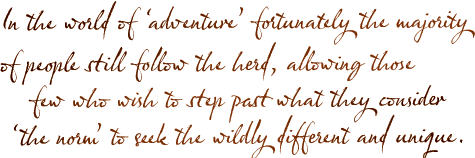 In the world of 'adventure' fortunately the majority
of people still follow the herd, allowing those
few who wish to step past what they consider
'the norm' to seek the wildly different and unique.